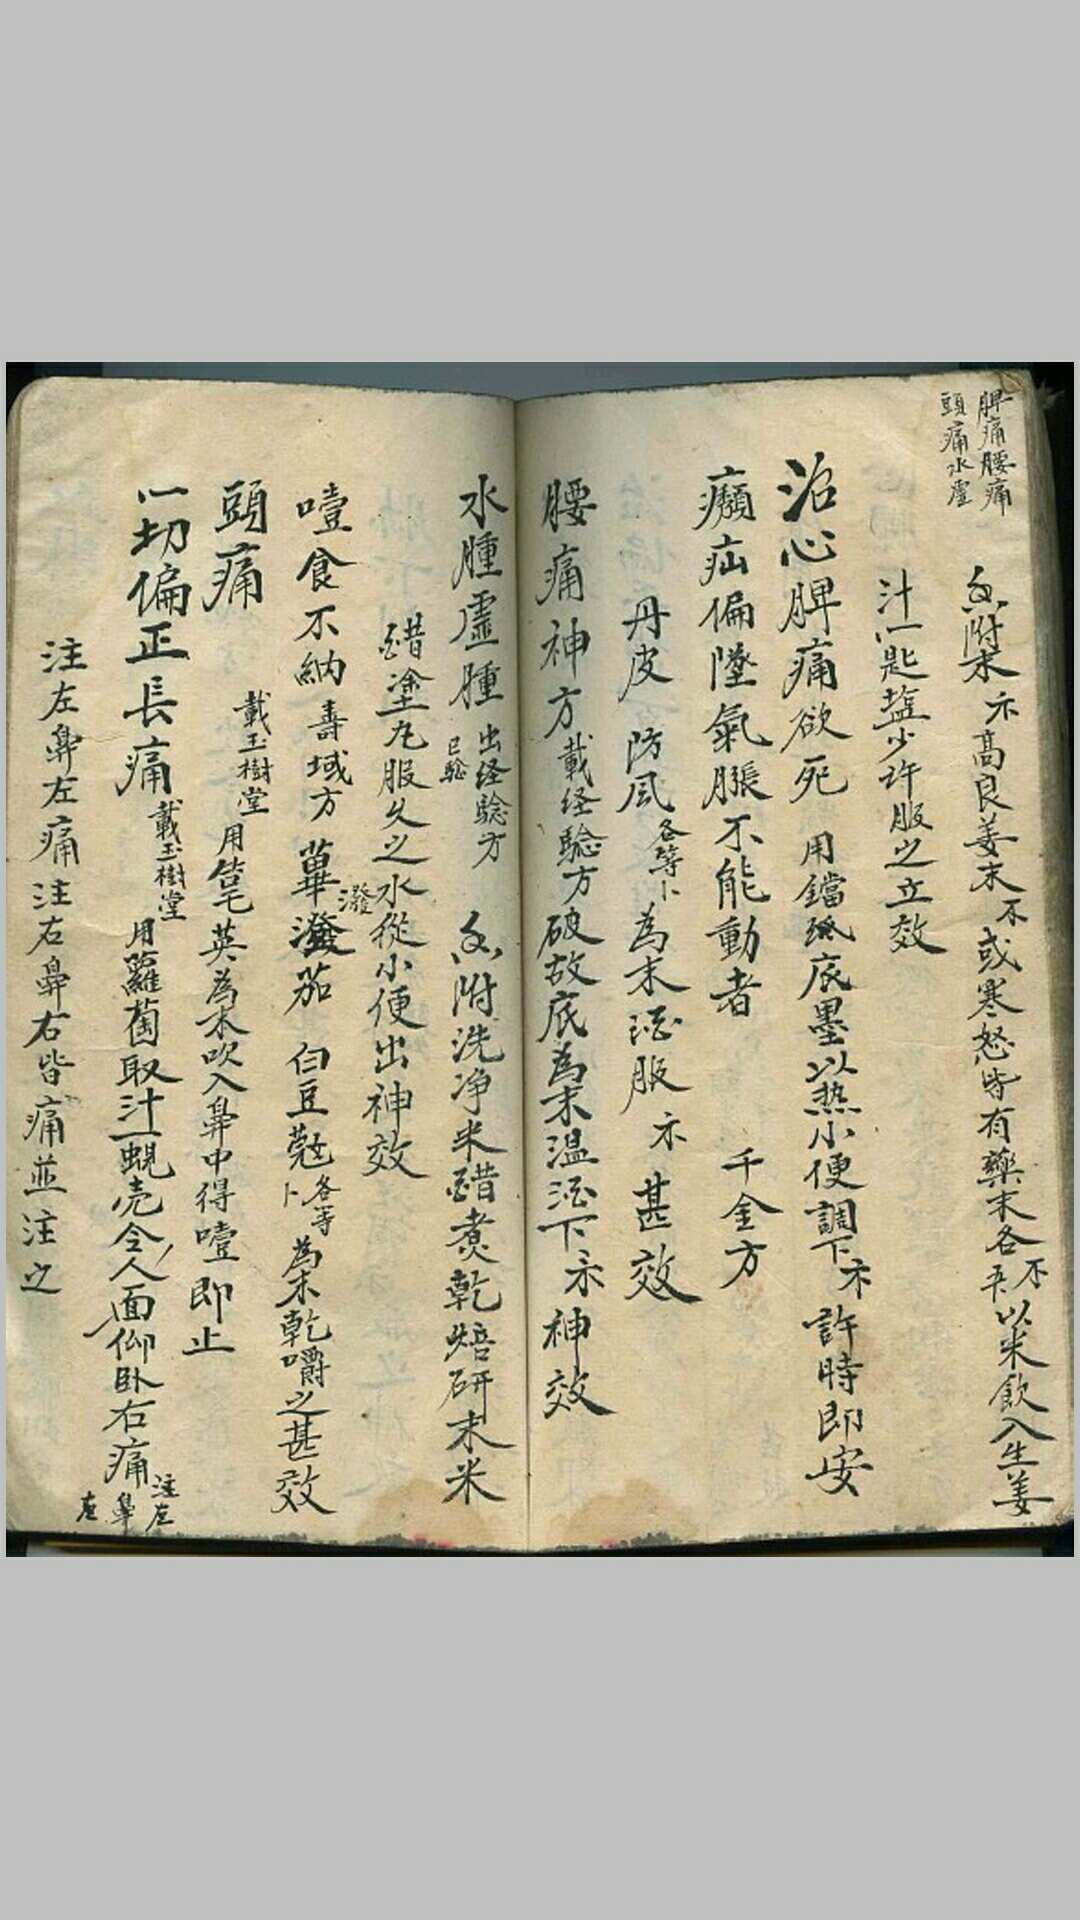 脾痛腰痛
頭痛水虛
香附末 高良姜末 或寒怒皆有藥末各 以米飲入生姜
汁一匙塩少許服之立效
治心脾痛欲死 用鐺底墨以热小便調下 許時即安
癩疝偏墜氣脹不能動者 千金方
丹皮 防風 各等卜 為末酒服 甚效
腰痛神方 載経驗方 破故底為末温酒下 神效
水腫虛腫 出経驗方 已驗 香附洗净米醋煮乾焙研末米
醋塗丸服久之水從小便出神效
噎食不納 壽域方 蓽澄茄 白豆蔻 各等卜 為末乾嚼之甚效
頭痛 載玉樹堂 用皂英為末吹入鼻中得嚏即止
一切偏正長痛 載玉樹堂 用蘿蔔取汁一蜆壳令人面仰卧右痛 注左鼻
注左鼻左痛注右鼻右皆痛並注之